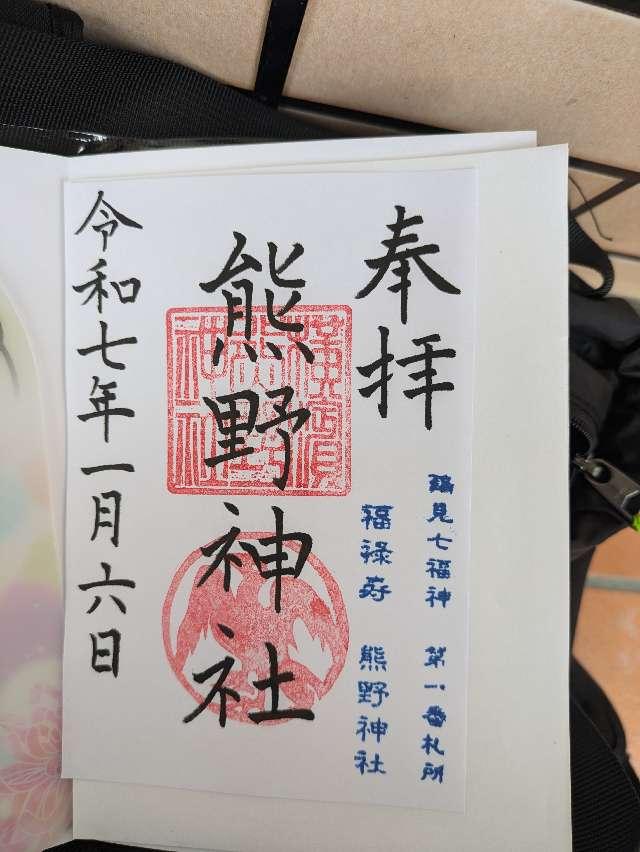 奉拝
鶴見七福神 第一番札所
福禄寿 熊野神社
熊野神社
横濱熊野神社
令和七年一月六日